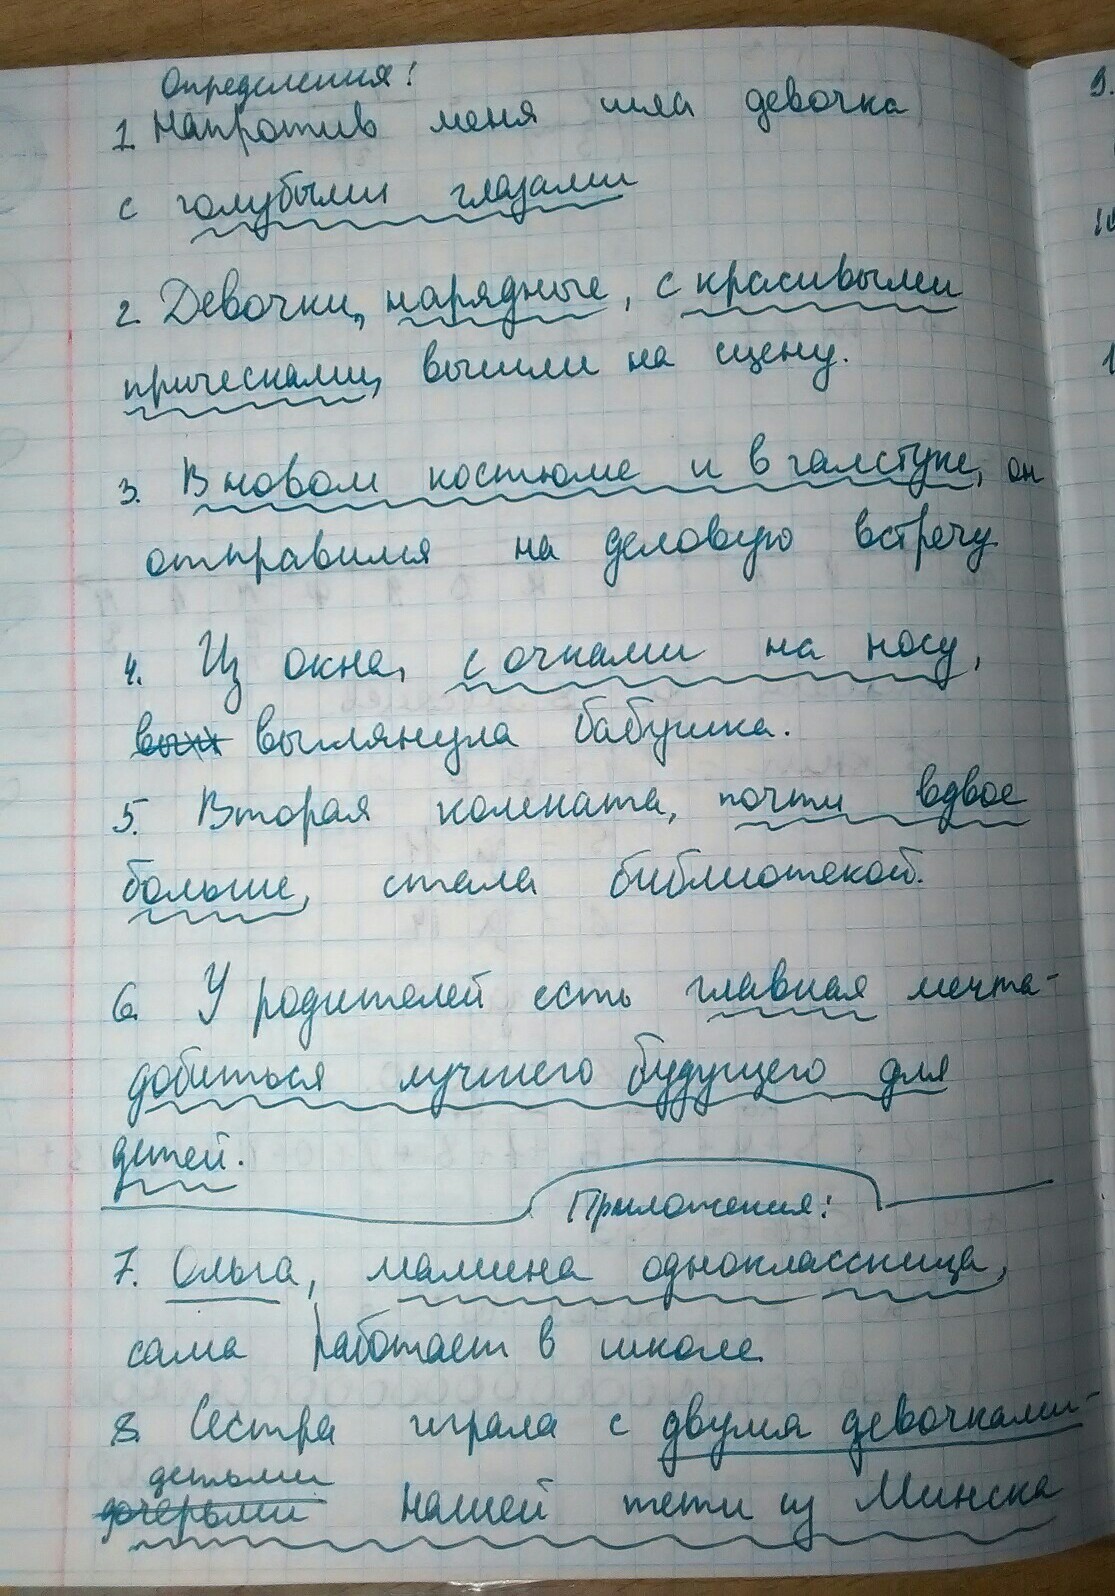 Определения!
1. Напротив меня шла девочка
с голубыми глазами
2. Девочки, нарядные, с красивыми
прическами, вышли на сцену.
3. В новом костюме и в галстуке, он
отправился на деловую встречу
4. Из окна, с очками на носу,
выглянула бабушка.
5. Вторая комната, почти вдвое
больше, стала библиотекой.
6. У родителей есть главная мечта-
добиться лучшего будущего для
детей.
Приложения:
7. Ольга, мамина одноклассница,
сама работает в школе
8. Сестра играла с двумя девочками-
детьми
дочерьми нашей тети из Минска
9.
10
1